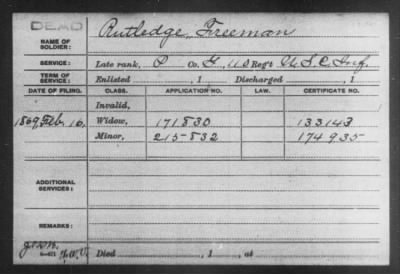 DEAD
NAME OF SOLDIER: Rutledge, Freeman
SERVICE: Late rank, P Co. G, US Reg't U.S.C. Inf.
TERM OF SERVICE: Enlisted , 1 Discharged , 1
DATE OF FILING. CLASS. APPLICATION NO. LAW. CERTIFICATE NO.
Invalid,
1869 Feb. 16, Widow, 171830 133143
Minor, 215832 174935
ADDITIONAL SERVICES:
REMARKS:
Died , 1 , at